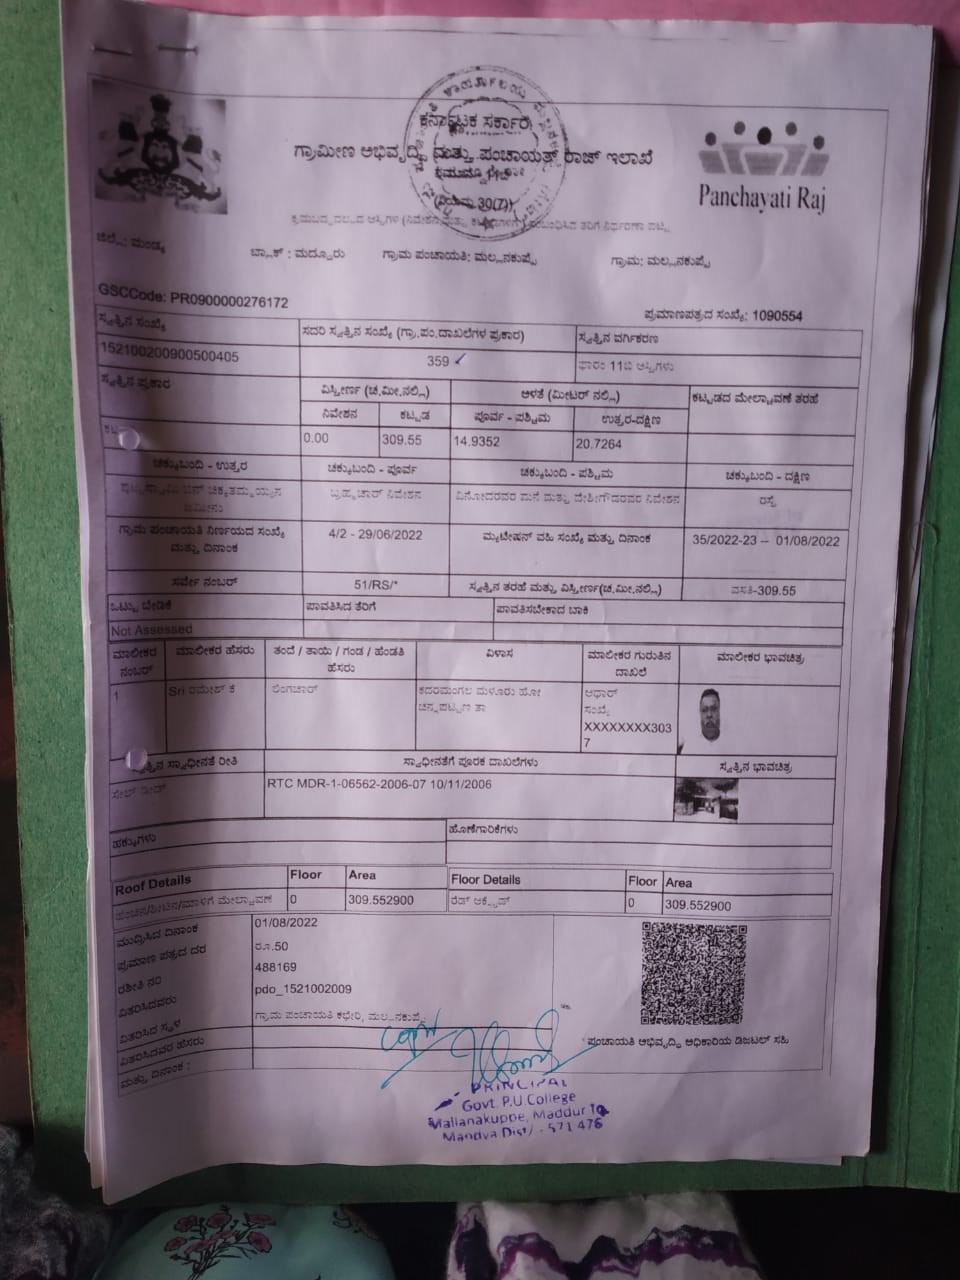 ಕರ್ನಾಟಕ ಸರ್ಕಾರ
ಗ್ರಾಮೀಣ ಅಭಿವೃದ್ಧಿ ಮತ್ತು ಪಂಚಾಯತ್ ರಾಜ್ ಇಲಾಖೆ
(ನಿಯಮ 30(7))
Panchayati Raj
ಜಿಲ್ಲೆ: ಮಂಡ್ಯ ಬ್ಲಾಕ್ : ಮದ್ದೂರು ಗ್ರಾಮ ಪಂಚಾಯತಿ: ಮಲ್ಲನಕುಪ್ಪೆ ಗ್ರಾಮ: ಮಲ್ಲನಕುಪ್ಪೆ
GSCCode: PR0900000276172 ಪ್ರಮಾಣಪತ್ರದ ಸಂಖ್ಯೆ: 1090554
ಸ್ವತ್ತಿನ ಸಂಖ್ಯೆ ಸದರಿ ಸ್ವತ್ತಿನ ಸಂಖ್ಯೆ (ಗ್ರಾ.ಪಂ.ದಾಖಲೆಗಳ ಪ್ರಕಾರ) ಸ್ವತ್ತಿನ ವರ್ಗಿಕರಣ
152100200900500405 359 ಫಾರಂ 11ಬಿ ಆಸ್ತಿಗಳು
ಸ್ವತ್ತಿನ ಪ್ರಕಾರ ವಿಸ್ತೀರ್ಣ (ಚ.ಮೀ.ನಲ್ಲಿ) ಅಳತೆ (ಮೀಟರ್ ನಲ್ಲಿ) ಕಟ್ಟಡದ ಮೇಲ್ಚಾವಣೆ ತರಹೆ
ನಿವೇಶನ ಕಟ್ಟಡ ಪೂರ್ವ - ಪಶ್ಚಿಮ ಉತ್ತರ-ದಕ್ಷಿಣ
0.00 309.55 14.9352 20.7264
ಚಕ್ಕುಬಂದಿ - ಉತ್ತರ ಚಕ್ಕುಬಂದಿ - ಪೂರ್ವ ಚಕ್ಕುಬಂದಿ - ಪಶ್ಚಿಮ ಚಕ್ಕುಬಂದಿ - ದಕ್ಷಿಣ
ಪುಟ್ಟಸ್ವಾಮಿ ಬಿನ್ ಚಿಕ್ಕತಮ್ಮಯ್ಯನ ಬ್ರಹ್ಮಚಾರ್ ನಿವೇಶನ ವಿನೋದರವರ ಮನೆ ಮತ್ತು ದೇಶೀಗೌಡರವರ ನಿವೇಶನ ರಸ್ತೆ
ಜಮೀನು
ಗ್ರಾಮ ಪಂಚಾಯತಿ ನಿರ್ಣಯದ ಸಂಖ್ಯೆ 4/2 - 29/06/2022 ಮ್ಯುಟೇಷನ್ ವಹಿ ಸಂಖ್ಯೆ ಮತ್ತು ದಿನಾಂಕ 35/2022-23 -- 01/08/2022
ಮತ್ತು ದಿನಾಂಕ
ಸರ್ವೇ ನಂಬರ್ 51/RS/* ಸ್ವತ್ತಿನ ತರಹೆ ಮತ್ತು ವಿಸ್ತೀರ್ಣ(ಚ.ಮೀ.ನಲ್ಲಿ) ವಸತಿ-309.55
ಒಟ್ಟು ಬೇಡಿಕೆ ಪಾವತಿಸಿದ ತೆರಿಗೆ ಪಾವತಿಸಬೇಕಾದ ಬಾಕಿ
Not Assessed
ಮಾಲೀಕರ ಮಾಲೀಕರ ಹೆಸರು ತಂದೆ / ತಾಯಿ / ಗಂಡ / ಹೆಂಡತಿ ವಿಳಾಸ ಮಾಲೀಕರ ಗುರುತಿನ ಮಾಲೀಕರ ಭಾವಚಿತ್ರ
ನಂಬರ್ ಹೆಸರು ದಾಖಲೆ
1 Sri ರಮೇಶ್ ಕೆ ಲಿಂಗಚಾರ್ ಕದರಮಂಗಲ ಮಳೂರು ಹೋ ಆಧಾರ್
ಚನ್ನಪಟ್ಟಣ ತಾ ಸಂಖ್ಯೆ
XXXXXXXX303
7
ಸ್ವತ್ತಿನ ಸ್ವಾಧೀನತೆ ರೀತಿ ಸ್ವಾಧೀನತೆಗೆ ಪೂರಕ ದಾಖಲೆಗಳು ಸ್ವತ್ತಿನ ಭಾವಚಿತ್ರ
ಸೇಲ್ ಡೀಡ್ RTC MDR-1-06562-2006-07 10/11/2006
ಹಕ್ಕುಗಳು ಹೊಣೆಗಾರಿಕೆಗಳು
Roof Details Floor Area Floor Details Floor Area
ಹಂಚಿನ/ಶೀಟಿನ/ಮಾಳಿಗೆ ಮೇಲ್ಚಾವಣಿ 0 309.552900 ರೆಡ್ ಆಕ್ಸೈಡ್ 0 309.552900
ಮುದ್ರಿಸಿದ ದಿನಾಂಕ 01/08/2022
ಪ್ರಮಾಣ ಪತ್ರದ ದರ ರೂ.50
ರಶೀತಿ ನಂ 488169
ವಿತರಿಸಿದವರು pdo_1521002009
ವಿತರಿಸಿದ ಸ್ಥಳ ಗ್ರಾಮ ಪಂಚಾಯತಿ ಕಛೇರಿ, ಮಲ್ಲನಕುಪ್ಪೆ
ವಿತರಿಸಿದವರ ಹೆಸರು ಪಂಚಾಯತಿ ಅಭಿವೃದ್ಧಿ ಅಧಿಕಾರಿಯ ಡಿಜಿಟಲ್ ಸಹಿ
ಮತ್ತು ದಿನಾಂಕ :
PRINCIPAL
Govt. P.U.College
Mallanakuppe, Maddur Tq
Mandya Dist/ - 571 476